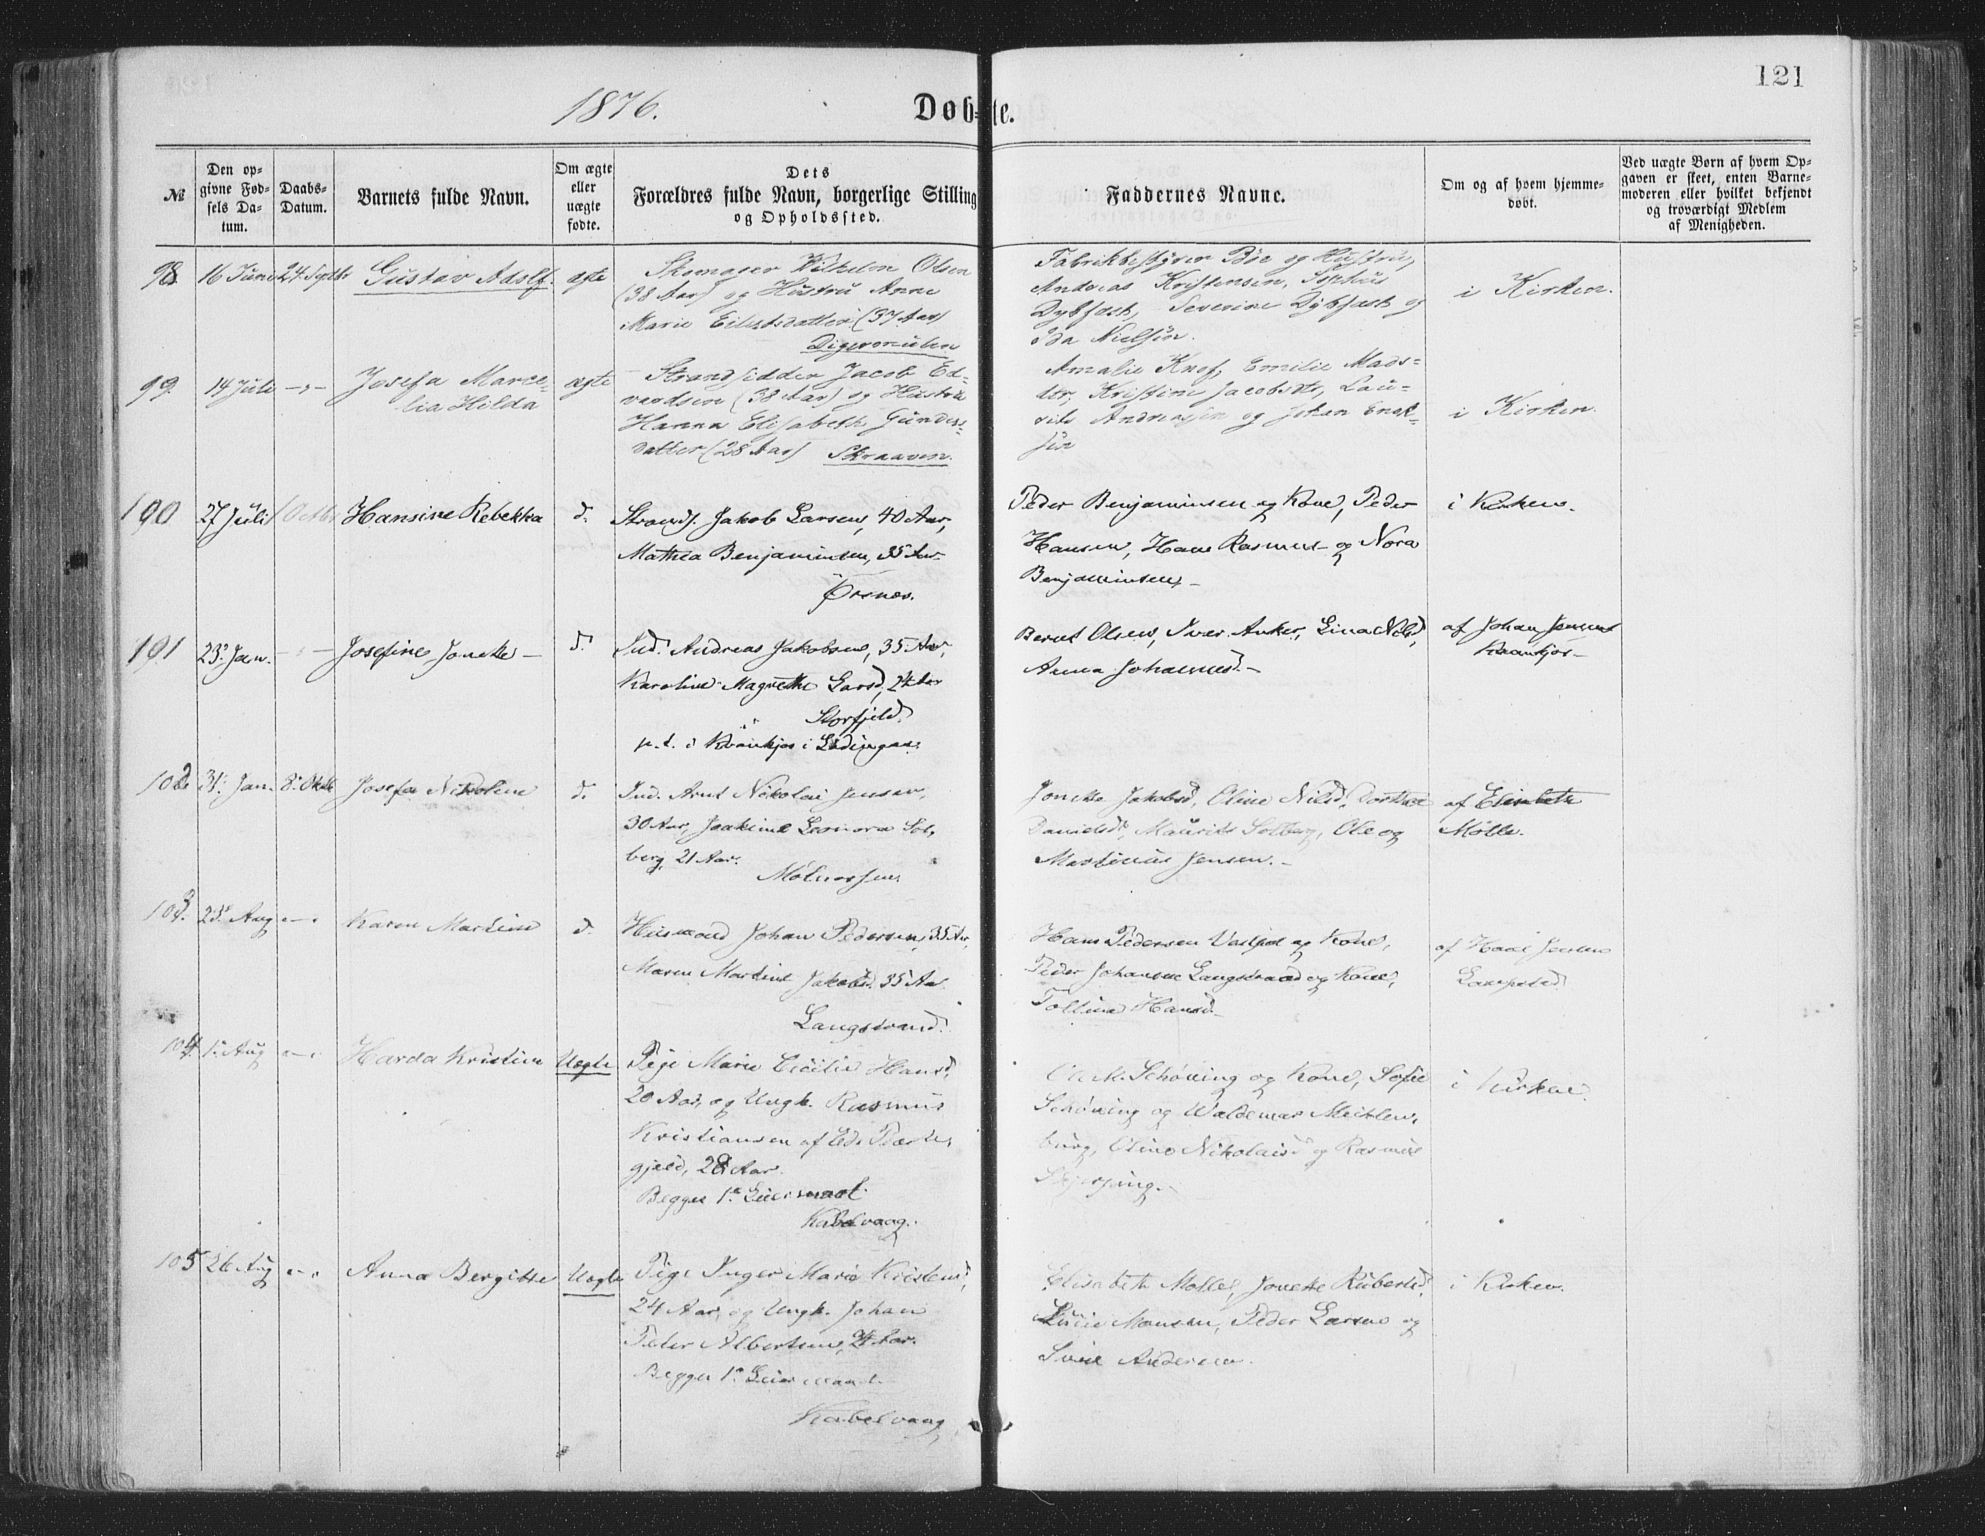 121
1876.
Døbte.
№
Den opgivne Fødsels Datum.
Daabs-Datum.
Barnets fulde Navn.
Om ægte eller uægte fødte.
Dets Forældres fulde Navn, borgerlige Stilling og Opholdssted.
Faddernes Navne.
Om og af hvem hjemmedøbt.
Ved uægte Børn af hvem Opgaven er skeet, enten Barnemoderen eller hvilket bekjendt og troværdigt Medlem af Menigheden.
98 16 Juni 24 Septbr Gustav Adolf. ægte
Skomager Wilhelm Olsen
(38 Aar) og Hustru Anne
Marie Eilertsdatter (37 Aar)
Digermulen
Fabrikbestyrer Bøe og Hustru,
Andreas Kristensen, Sophus
Dybfest, Severine Dybfest og
Ida Nielsen.
i Kirken.
99. 14 Juli -"- Josefa Marcelia Hilda ægte
Strandsidder Jacob Edvardsen (38 Aar) og Hustru
Hanna Elisabeth Gundersdatter (28 Aar) Skraaven.
Amalie Knof, Emilie Madsdtr, Kristine Jacobsdtr,
Andreassen og Johan
i Kirken.
100 27 Juli 1 Octbr Hansine Rebekka d.
Strands. Jakob Larsen, 40 Aar,
Mathea Benjaminsen, 35 Aar
Ørsnes.
Peder Benjaminsen og Kone, Peder
Hansen, Hans Rasmus og Nora
Benjaminsen
i Kirken.
101 23 Jan. -"- Josefine Jonette d.
Ind. Andreas Jakobsen, 35 Aar,
Karoline Magrethe Larsd, 24 Aar
Storfjeld.
p.t. i Kvænkjos i Lødingen.
Bernt Olsen, Iver Anker, Lina Nilsd,
Anna Johannesd.
af Johan Jensen
102 31 Jan. 8. Oktb Josefa Nikoline d.
Ind. Arnt Nikolai Jensen,
30 Aar, Joakime Leonora Solberg, 21 Aar.
Molnosen
Jonette Jakobsd, Oline Nilsd, Dorthea
Danielsd, Maurits Solberg, Ole og
Martinus Jensen.
af Elisabeth
Mølle.
103. 23 Aug -"- Karen Martine d.
Husmand Johan Pedersen, 35 Aar,
Maren Martine Jakobsd. 35 Aar
Langstrand.
Hans Pedersen og Kone,
Peder Johansen Langstrand og Kone,
Hansd.
af Jensen
104. 1. Aug -"- Harda Kristine Uægte
Pige Marie Cicilie Hansd,
20 Aar, og Ungk. Rasmus
Kristiansen af Eds Præstegjeld, 28 Aar.
Begges 1ste Leiermaal.
Kabelvaag.
Schøning og Kone, Sofie
Schøning og Waldemar
Oline Nikolaisd og Rasmus
i Kirken.
105 26 Aug -"- Anna Bergitte Uægte
Pige Inger Marie Kristensd,
24 Aar, og Ungk. Johan
Peter Albertsen, 24 Aar.
Begges 1ste Leiermaal
Kabelvaag
Elisabeth Mølle, Jonette Rubertsd,
Lucie Monsen, Peder Larsen og
Andersen.
i Kirken.